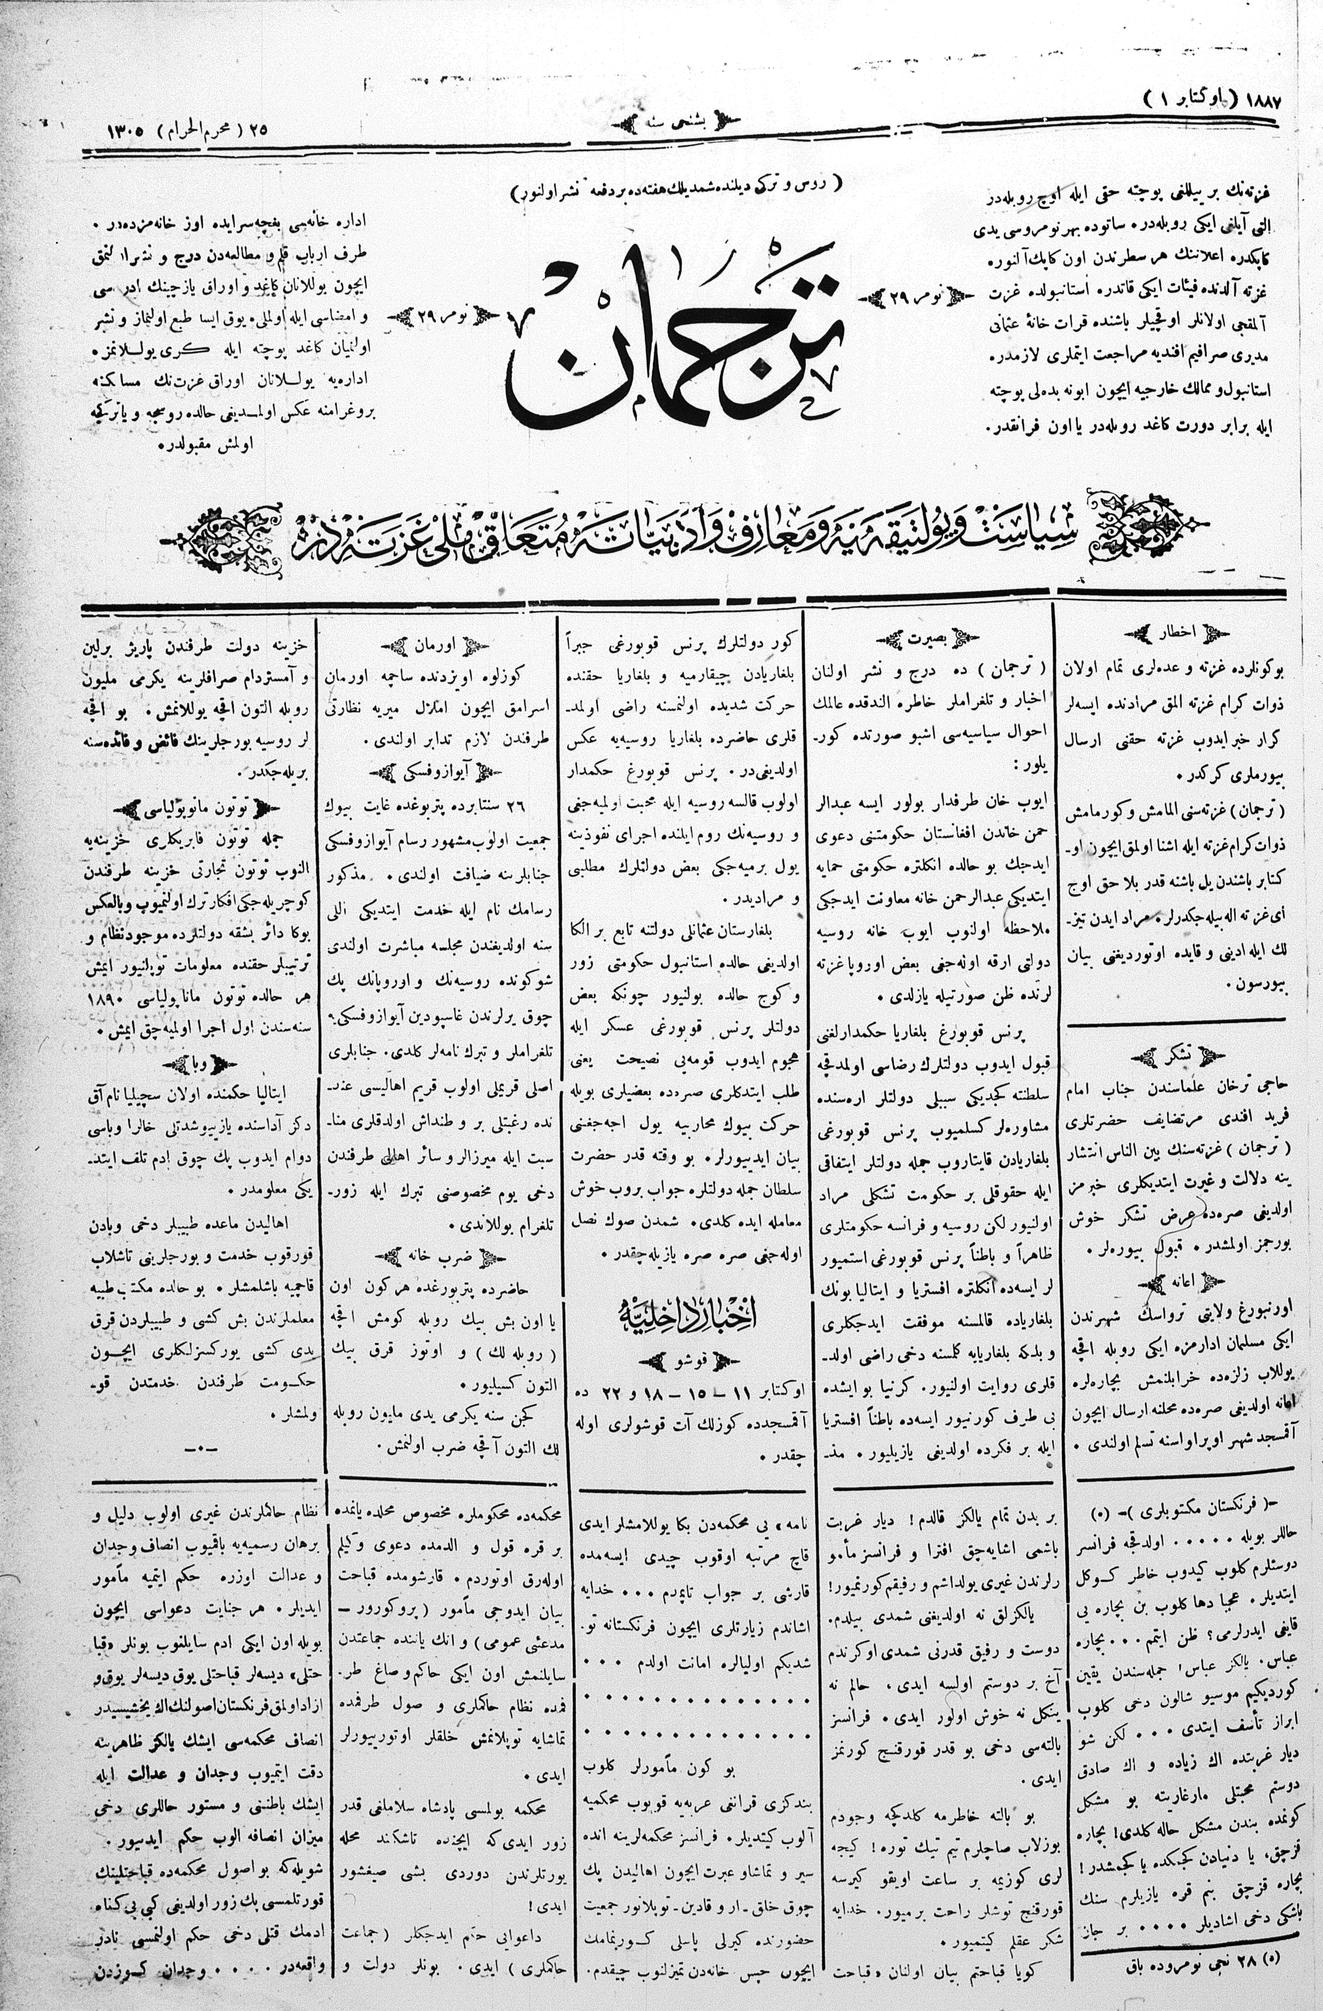 ١٨٨٧ (اوكتابر ١)
بشنجی سنه
٢٥ (محرم الحرام) ١٣٠٥
(روس و تركی دیلنده شمدیلك هفته‌ده بر دفعه نشر اولنور)
غزته‌نك بر ییللغی پوچته حقی ایله اوچ روبله‌در
التی آیلغی ایكی روبله‌در. ساتوده بهر نومروسی یدی
كاپكدر. اعلاننك هر سطرندن اون كاپك آلنور.
غزته آلدنده فیئات ایكی قاتدر. استانبولده غزت
آلمقجی اولانلر اوقچیلر باشنده قرات خانهٔ عثمانی
مدیری صرافیم افندیه مراجعت ایتملری لازمدر.
استانبول و ممالك خارجیه ایچون ابونه بده‌لی پوچته
ایله برابر دورت كاغد روبله‌در یا اون فرانقدر.
نومر ٢٩
ترجمان
نومر ٢٩
اداره خانه‌سی بغچه‌سرایده اوز خانه‌مزده‌در.
طرف ارباب قلم و مطالعه‌دن درج و نشر اولنمق
ایچون یوللانان كاغد و اوراق یازجینك ادرسی
و امضاسی ایله اولملی. یوق ایسا طبع اولنماز و نشر
اولنمیان كاغد پوچته ایله كری یوللانمز.
اداره‌یه یوللانان اوراق غزت‌نك مسلكنه
پروغرامنه عكس اولمدیغی حالده روسجه و یا تركجه
اولمش مقبولدر.
سیاست و پولتیقه‌یه و معارف و ادبیاته متعلق ملی غزته‌در
اخطار
بو كونلرده غزته و عده‌لری تمام اولان
ذوات كرام غزته المق مرادنده ایسه‌لر
كرار خبر ایدوب غزته حقنی ارسال
بیورملری كركدر.
(ترجمان) غزته‌سنی المامش و كورمامش
ذوات كرام غزته ایله اشنا اولمق ایچون او-
كتابر باشندن یل باشنه قدر بلا حق اوچ
ای غزته اله‌بیله‌جكدرلر. مراد ایدن تیز-
لك ایله ادینی و قایده اوتوردیغنی بیان
بیورسون.
تشكر
حاجی ترخان علماسندن جناب امام
فرید افندی مرتضایف حضرتلری
(ترجمان) غزته‌سنك بین الناس انتشار
ینه دلالت و غیرت ایتدیكلری خبرمز
اولدیغی صره‌ده عرض تشكر خوش
بورجمز اولمشدر. قبول بیوره‌لر.
اعانه
اورنبورغ ولایتی ترواسك شهرندن
ایكی مسلمان ادارمزه ایكی روبله اقچه
یوللاب زلزه‌ده خرابلنمش بچاره‌لره
اعانه اولدیغی صره‌ده محلنه ارسال ایچون
آقمسجد شهر اوپراواسنه تسلم اولندی.
بصیرت
(ترجمان) ده درج و نشر اولنان
اخبار و تلغراملر خاطره الندقده عالمك
احوال سیاسیه‌سی اشبو صورتده كور-
یلور:
ایوب خان طرفدار بولور ایسه عبدالر
حمن خاندن افغانستان حكومتنی دعوی
ایدجك بو حالده انكلتره حكومتی حمایه
ایتدیكی عبدالرحمن خانه معاونت ایدجكی
ملاحظه اولنوب ایوب خانه روسیه
دولتی ارقه اوله‌جغی بعض اوروپا غزته
لرنده ظن صورتیله یازلدی.
پرنس قوبورغ بلغاریا حكمدارلغنی
قبول ایدوب دولتلرك رضاسی اولمدقچه
سلطنته كچدیكی سببلی دولتلر اره‌سنده
مشاوره‌لر كسلمیوب پرنس قوبورغی
بلغاریادن قایتاروب جمله دولتلر ایتفاقی
ایله حقوقلی بر حكومت تشكلی مراد
اولنیور لكن روسیه و فرانسه حكومتلری
ظاهراً و باطناً پرنس قوبورغی استمیور
لر ایسه‌ده انكلتره افستریا و ایتالیا بونك
بلغاریاده قالمسنه موفقت ایدجكلری
و بلكه بلغاریایه كلمسنه دخی راضی اولد-
قلری روایت اولنیور. كرنیا بو ایشده
بی طرف كورنیور ایسه‌ده باطناً افستریا
ایله بر فكرده اولدیغی یازیلیور. مذ-
كور دولتلرك پرنس قوبورغی جبراً
بلغاریادن چیقارمیه و بلغاریا حقنده
حركت شدیده اولنمسنه راضی اولمد-
قلری حاضرده بلغاریا روسیه‌یه عكس
اولدیغی‌در. پرنس قوبورغ حكمدار
اولوب قالسه روسیه ایله محبت اولمیه‌جغی
و روسیه‌نك روم ایلنده اجرای نفوذینه
یول برمیه‌جكی بعض دولتلرك مطلبی
و مرادیدر.
بلغارستان عثمانلی دولتنه تابع بر الكا
اولدیغی حالده استانبول حكومتی زور
و كوچ حالده بولنیور چونكه بعض
دولتلر پرنس قوبورغی عسكر ایله
هجوم ایدوب قومه‌یی نصیحت یعنی
طلب ایتدكلری صره‌ده بعضیلری بویله
حركت بیوك محاربه‌یه یول اچه‌جغنی
بیان ایدییورلر. بو وقته قدر حضرت
سلطان جمله دولتلره جواب بروب خوش
معامله ایده كلدی. شمدن صوك نصل
اوله‌جغی صره صره یازیله‌چقدر.
اخبار داخلیه
قوشو
اوكتابر ١١ – ١٥ – ١٨ و ٢٢ ده
آقمسجدده كوزلك آت قوشولری اوله
چقدر.
اورمان
كوزلوه اویزدنده ساچمه اورمان
اسرامق ایچون املاك میریه نظارتی
طرفندن لازم تدابر اولندی.
آیوازوفسكی
٢٦ سنتابرده پتربوغده غایت بیوك
جمعیت اولوب مشهور رسام آیوازوفسكی
جنابلرینه ضیافت اولندی. مذكور
رسامك نام ایله خدمت ایتدیكی اللی
سنه اولدیغندن مجلسه مباشرت اولندی
شوكونده روسیه‌نك و اوروپانك پك
چوق یرلرندن غاسپودین آیوازوفسكی‌یه
تلغراملر و تبرك نامه‌لر كلدی. جنابلری
اصلی قریملی اولوب قریم اهالیسی عند-
نده رغبتلی بر وطنداش اولدقلری منا-
سبت ایله میرزالر و سائر اهالی طرفندن
دخی یوم مخصوصنی تبرك ایله زور-
تلغرام یوللاندی.
ضرب خانه
حاضرده پتربورغده هر كون اون
یا اون بش بیك روبله كومش اقچه
(روبله‌لك) و اوتوز قرق بیك
التون كسیلیور.
كچن سنه یكرمی یدی ملیون روبله
لك التون آقچه ضرب اولنمش.
خزینه دولت طرفندن پاریژ برلین
و آمستردام صرافلرینه یكرمی ملیون
روبله التون اقچه یوللانمش. بو اقچه
لر روسیه بورجلرینك فائض و فائده‌سنه
بریله‌جكدر.
توتون مانوپولیاسی
جمله توتون فابریكلری خزینه‌یه
النوب توتون تجارتی خزینه طرفندن
كوچریله‌جكی افكار ترك اولنمیوب و بالعكس
بوكا دائر بشقه دولتلرده موجود نظام و
ترتیبلر حقنده معلومات توپلنیور ایمش
هر حالده توتون ماناپولیاسی ١٨٩٠
سنه‌سندن اول اجرا اولمیه‌چق ایمش.
وبا
ایتالیا حكمنده اولان سچیلیا نام آق
دكز آداسنده یازییوشدتلی خالرا وباسی
دوام ایدوب پك چوق ادم تلف ایتد-
یكی معلومدر.
اهالیدن ماعده طبیبلر دخی وبادن
قورقوب خدمت و بورجلرینی تاشلاب
قاچمیه باشلمشلر. بو حالده مكتب طبیه
معلملرندن بش كشی و طبیبلردن قرق
یدی كشی یوركسزلكلری ایچون
حكومت طرفندن خدمتدن قو-
ولمشلر.
–(فرنكستان مكتوبلری)– (٥)
حاللر بویله . . . . . اولدقچه فرانسز
دوستلرم كلوب كیدوب خاطر كوكل
ایتدیلر. عجبا دها كلوب بن بچاره یی
قایغی ایدرلرمی؟ ظن ایتمم . . . بچاره
عباس. یالكز عباس! جمله‌سندن یقین
كوردیكیم موسیو شالون دخی كلوب
ابراز تأسف ایتدی . . . لكن شو
دیار غربتده اك زیاده و اك صادق
دوستم محبتلی مارغاریته بو مشكل
كونمده بندن مشكل حاله كلدی! بچاره
قزچق، یا دنیادن كچمكده یا كچمشدر!
بچاره قزچق بنم قره یازیلرم سنك
باشكی دخی اشادیلر . . . . بر جاز
(٥) ٢٨ نجی نومروده باق
بر بدن تمام یالكز قالدم! دیار غربت
باشمی اشایه‌جق افترا و فرانسز مأمو
رلرندن غیری یولداشم و رفیقم كورنمیور!
یالكزلق نه اولدیغنی شمدی بیلدم.
دوست و رفیق قدرنی شمدی اوكرندم
آخ بر دوستم اولسه ایدی. حالم نه
ینكل نه خوش اولور ایدی. فرانسز
بالته‌سی دخی بو قدر قورقنج كورنمز
ایدی.
بو بالته خاطرمه كلدكچه وجودم
بوزلاب صاچلرم تیم تیك توره! كیجه
لری كوزیمه بر ساعت اویقو كیرسه
قورقنج توشلر راحت برمیور. خدایه
شكر عقلم كیتمیور.
كویا قباحتم بیان اولنان «قباحت
نامه» یی محكمه‌دن بكا یوللامشلر ایدی
قاچ مرتبه اوقوب چیدی ایسه‌مده
قارشی بر جواب تاپمدم . . . خدایه
اشاندم زیارتلری ایچون فرنكستانه تو.
شدیكم اولیالره امانت اولدم . . .
بو كون مأمورلر كلوب
بندكزی قرانغی عربه‌یه قویوب محكمیه
آلوب كیتدیلر. فرانسز محكمه‌لرینه انده
سیر و تماشا و عبرت ایچون اهالیدن پك
چوق خلق - ار و قادین - توپلانور جمعیت
حضورنده كیرلی پاسلی كورنمامك
ایچون حبس خانه‌دن تمیزلنوب چیقدم.
محكمه‌ده محكوملره مخصوص محلده یانمده
بر قره قول و الدمده دعوی وكیلم
اوله‌رق اوتوردم. قارشومده قباحت
بیان ایدوجی مأمور (پروكورور –
مدعئی عمومی) و انك یاننده جماعتدن
سایلنمش اون ایكی حاكم و صاغ طر.
فمده نظام حاكملری و صول طرفمده
تماشایه توپلانمش خلقلر اوتورییورلر
ایدی.
محكمه بولمسی پادشاه سلاملغی قدر
زور ایدی كه ایچنده تاشكند محله
یورتلرندن دوردی بشی صیغشور
ایدی!
داعوایی حتم ایدجكلر (جماعت
حاكملری) ایدی. بونلر دولت و
نظام حاكملرندن غیری اولوب دلیل و
برهان رسمیه‌یه باقمیوب انصاف وجدان
و عدالت اوزره حكم ایتمیه مأمور
ایدیلر. هر جنایت دعواسی ایچون
بویله اون ایكی ادم سایلنوب بونلر «قبا
حتلی» دیسه‌لر قباحتلی یوق دیسه‌لر یوق و
ازاد اولمق فرنكستان اصولنك اك یخشیسیدر
انصاف محكمه‌سی ایشك یالكز ظاهرینه
دقت ایتمیوب وجدان و عدالت ایله
ایشك باطننی و مستور حاللری دخی
میزان انصافه الوب حكم ایدسیور.
شویله‌كه بو اصول محكمه‌ده قباحتلینك
قورتلمسی پك زور اولدیغی كبی بی كناه
ادمك قتلی دخی حكم اولنمسی نادر
واقعه‌در . . . . وجدان كوزدن